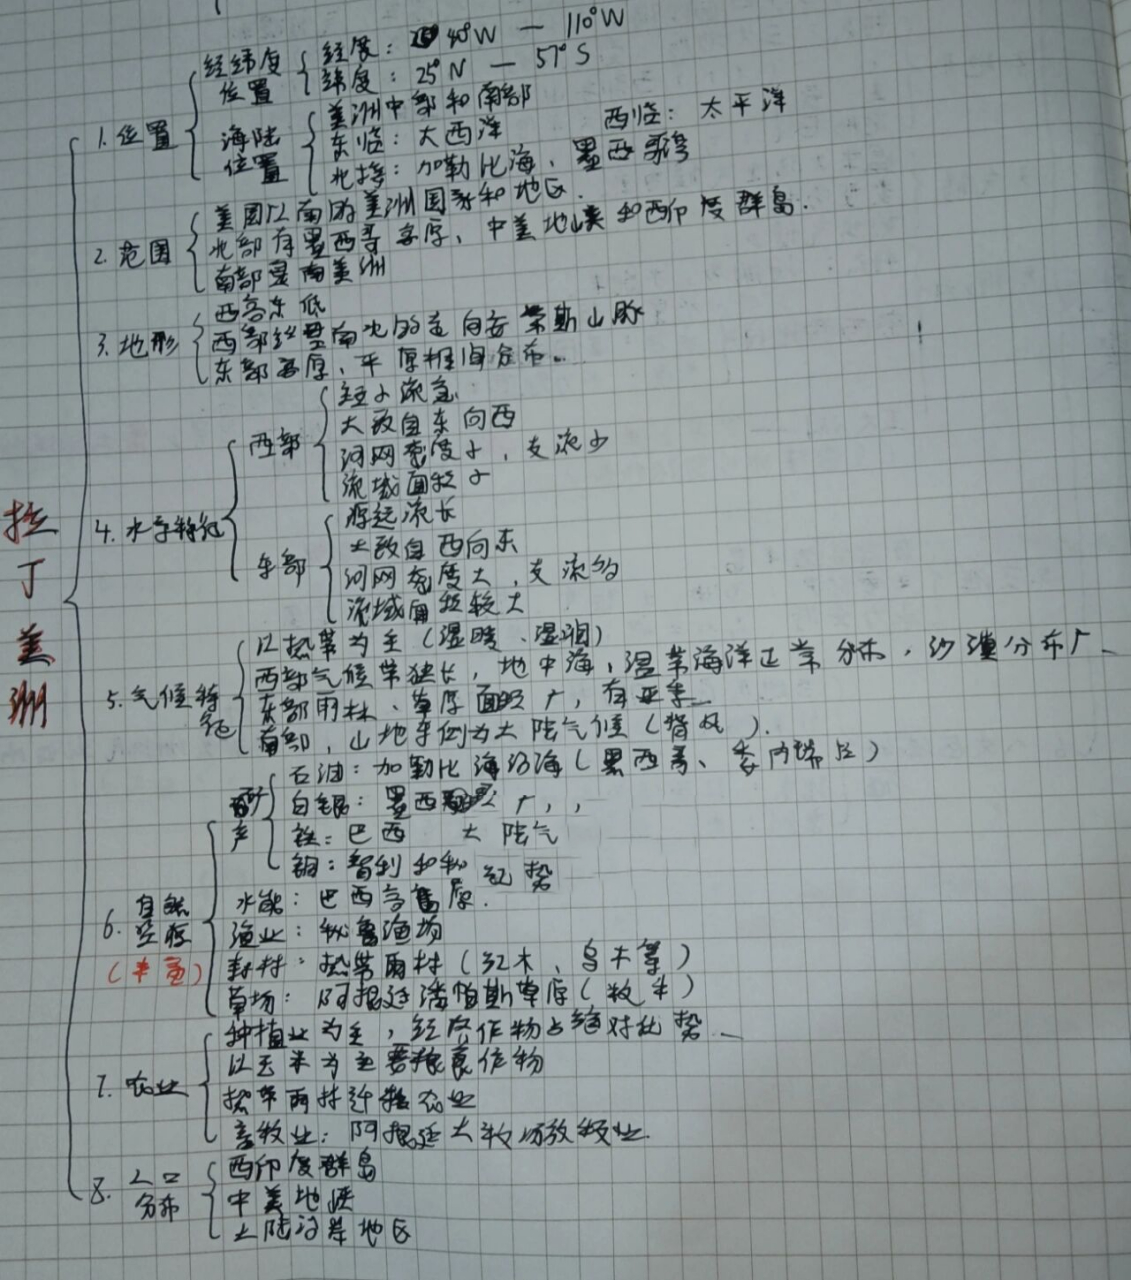 拉丁美洲
1. 位置
经纬度位置
经度: 40°W — 110°W
纬度: 25°N — 57°S
海陆位置
美洲中部和南部
东临: 大西洋 西临: 太平洋
北接: 加勒比海、墨西哥湾
2. 范围
美国以南的美洲国家和地区.
北部有墨西哥高原、中美地峡和西印度群岛.
南部是南美洲
3. 地形
西高东低
西部纵贯南北的走向安第斯山脉
东部高原、平原相间分布.
4. 水系特征
西部
短小流急
大致自东向西
河网密度小, 支流少
流域面积小
东部
源远流长
大致自西向东
河网密度大, 支流多
流域面积较大
5. 气候特征
以热带为主 (湿暖、湿润)
西部气候带狭长, 地中海, 温带海洋正常分布, 沙漠分布广
东部雨林、草原面积广, 有
南部, 山地东侧为大陆气候 (背风).
6. 自然资源
(丰富)
矿产
石油: 加勒比海沿海 (墨西哥、委内瑞拉)
白银: 墨西哥
铁: 巴西 大陆气
铜: 智利和秘
水能: 巴西高原.
渔业: 秘鲁渔场
森林: 热带雨林 (红木、乌木等)
草场: 阿根廷潘帕斯草原 (牧牛)
7. 农业
种植业为主, 经济作物占绝对优势
以玉米为主要粮食作物
热带雨林迁移农业
畜牧业: 阿根廷大牧场放牧业.
8. 人口分布
西印度群岛
中美地峡
大陆沿岸地区